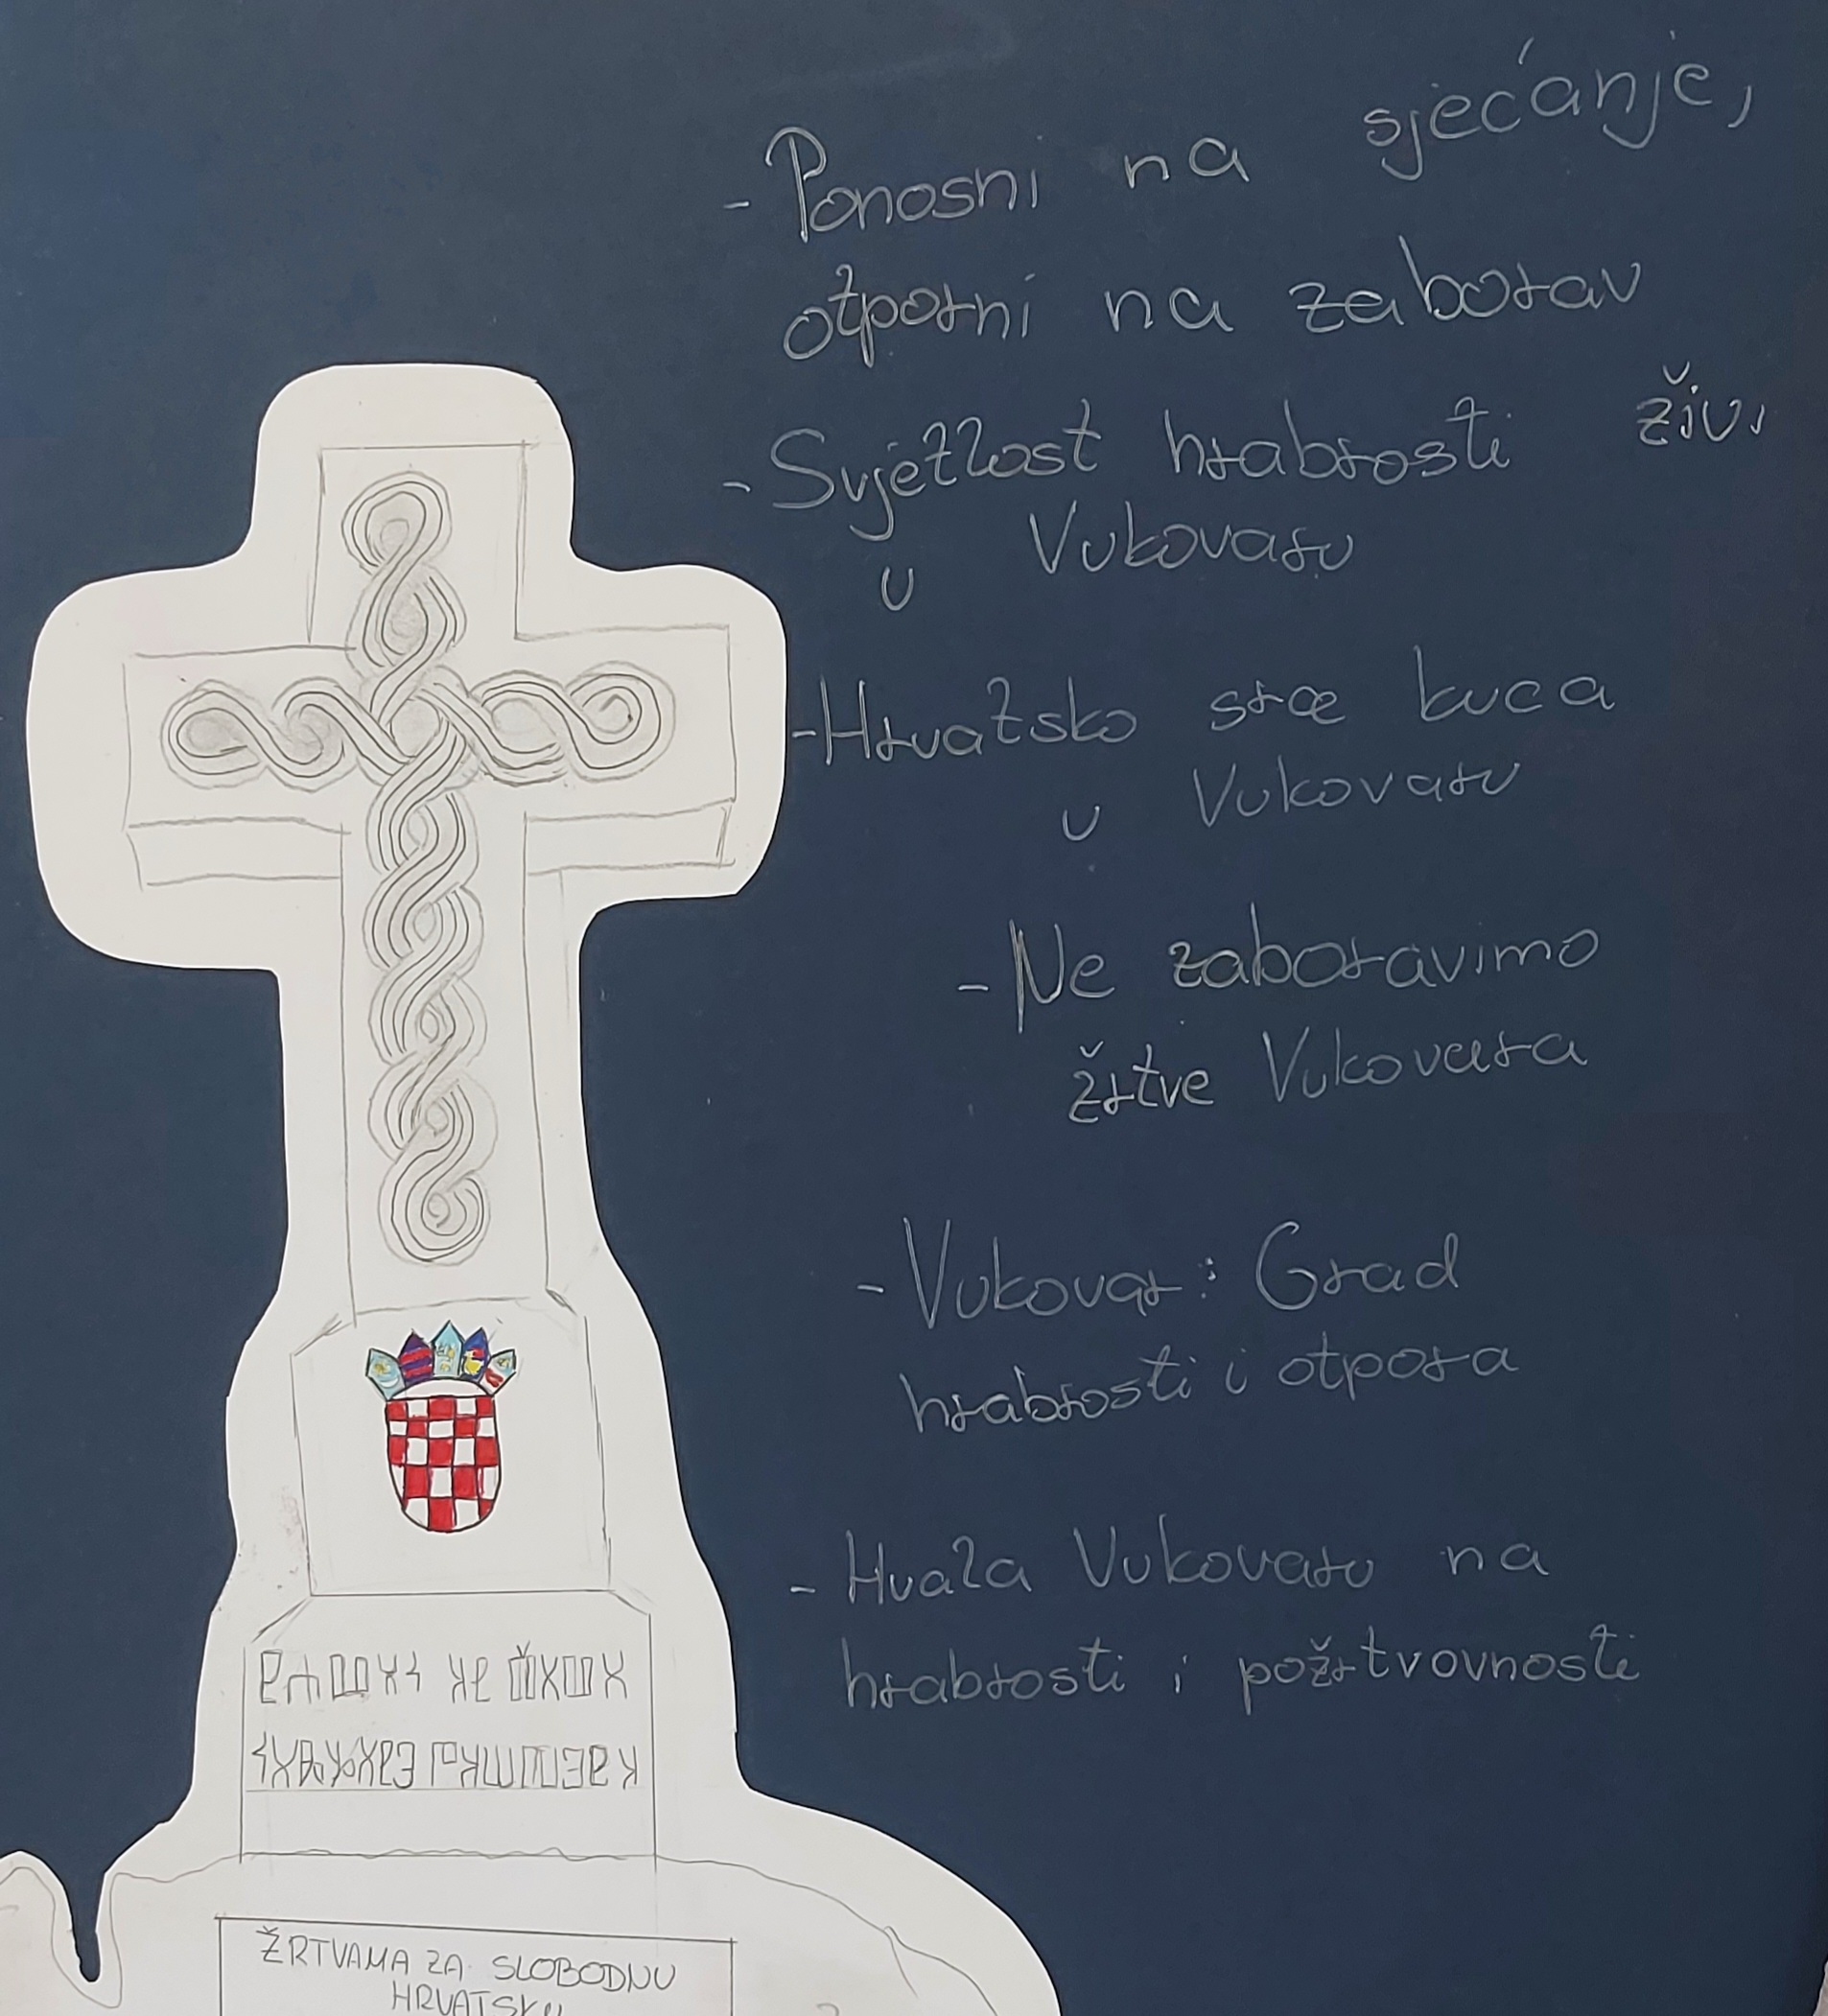 - Ponosni na sjećanje,
otporni na zaborav
- Svjetlost hrabrosti živi
u Vukovaru
- Hrvatsko srce kuca
u Vukovaru
- Ne zaboravimo
žrtve Vukovara
- Vukovar: Grad
hrabrosti i otpora
- Hvala Vukovaru na
hrabrosti i požrtvovnosti
ŽRTVAMA ZA SLOBODNU
HRVATSKU